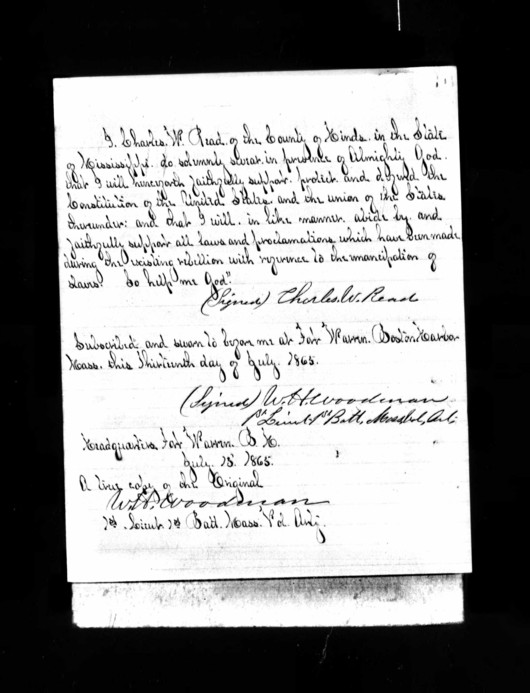 I, Charles. W. Read. of the County of Hinds. in the State
of Mississippi. do solemnly swear. in presence of Almighty God.
that I will henceforth faithfully support. protect and defend the
Constitution of the United States. and the union of the States
thereunder: and that I will. in like manner. abide by. and
faithfully support all laws and proclamations which have been made
during the existing rebellion with reference to the emancipation of
slaves. So help me God."
(Signed) Charles. W. Read
Subscribed and sworn to before me at Fort Warren. Boston Harbor
Mass. this thirteenth day of July. 1865.
(Signed) W. H. Woodman
1st Lieut 1st Batt. Mass Vol. Art.
Headquarters Fort Warren. B H.
July. 13. 1865.
A true copy of the Original
W. H. Woodman
1st Lieut 1st Batt. Mass. Vol. Arty.